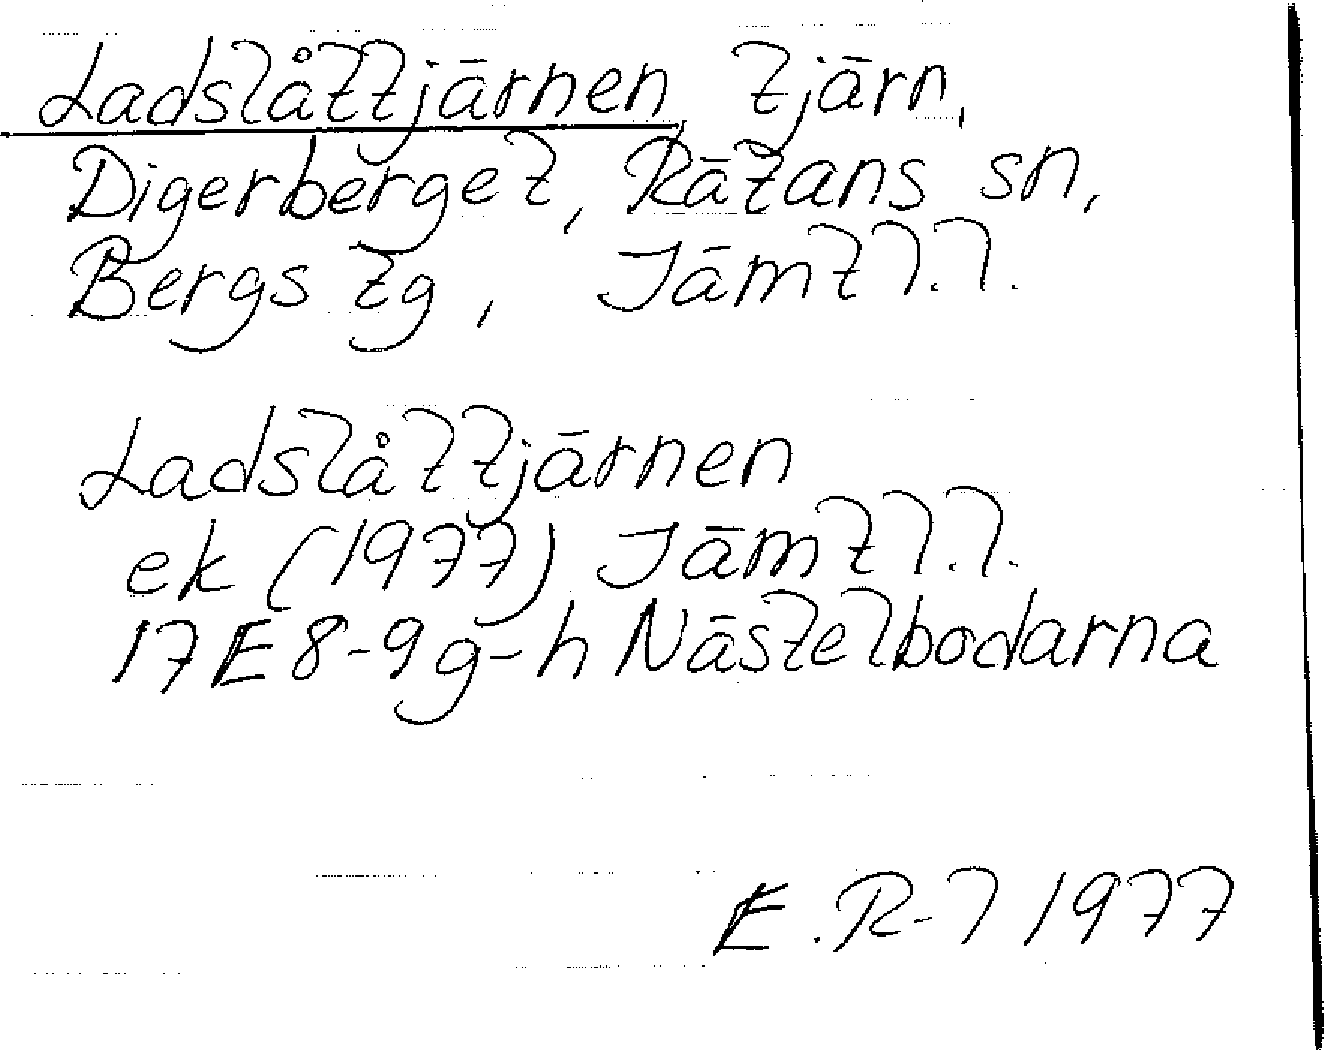 Ladslåttjärnen, tjärn,
Digerberget, Rätans sn,
Bergs tg, Jämtl.l.
Ladslåttjärnen
ek (1977) Jämtl.l.
17E 8-9 g-h Nästelbodarna
E.R-l 1977